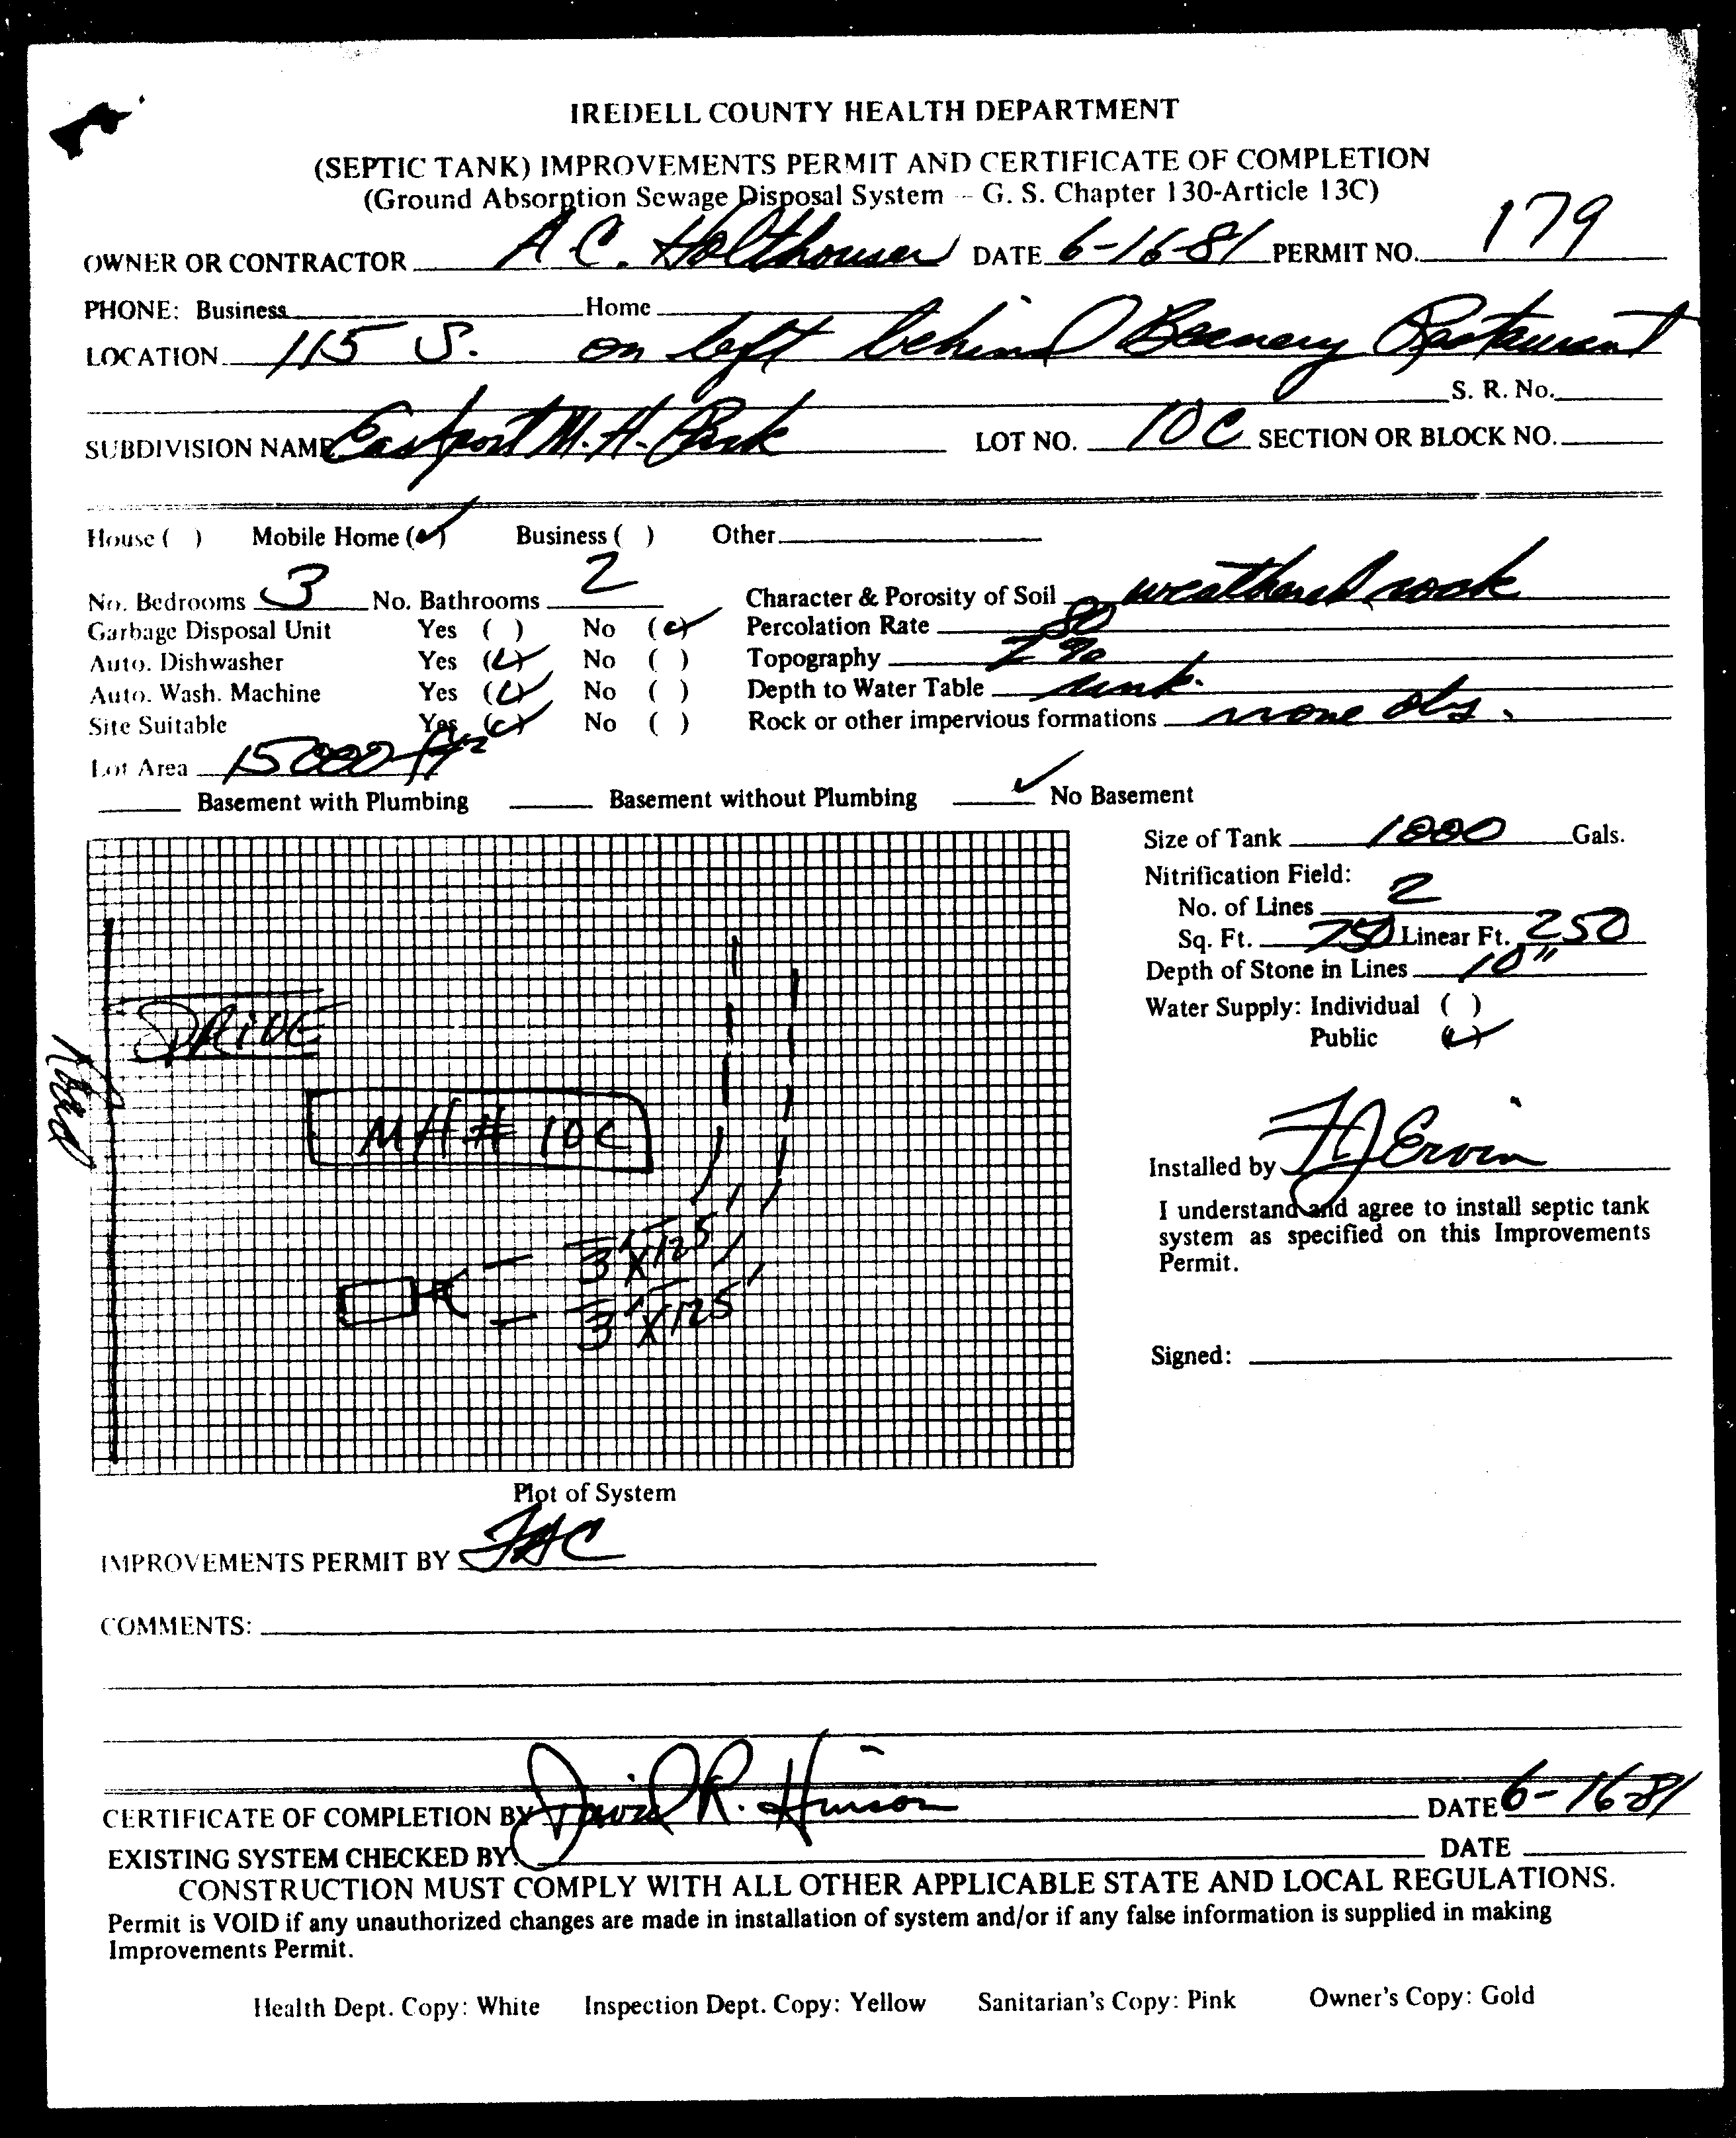 IREDELL COUNTY HEALTH DEPARTMENT
(SEPTIC TANK) IMPROVEMENTS PERMIT AND CERTIFICATE OF COMPLETION
(Ground Absorption Sewage Disposal System -- G. S. Chapter 130-Article 13C)
OWNER OR CONTRACTOR A C. Holthouser DATE 6-16-81 PERMIT NO. 179
PHONE: Business Home
LOCATION 115 S. on left behind Beanery Restaurant
S. R. No.
SUBDIVISION NAME Eastport M. H. Park LOT NO. 10C SECTION OR BLOCK NO.
House ( ) Mobile Home (✓) Business ( ) Other
No. Bedrooms 3 No. Bathrooms 2 Character & Porosity of Soil weathered rock
Garbage Disposal Unit Yes ( ) No (✓) Percolation Rate 80
Auto. Dishwasher Yes (✓) No ( ) Topography %
Auto. Wash. Machine Yes (✓) No ( ) Depth to Water Table unk.
Site Suitable Yes (✓) No ( ) Rock or other impervious formations none obs.
Lot Area 15000 ft²
Basement with Plumbing Basement without Plumbing ✓ No Basement
Size of Tank 1000 Gals.
Nitrification Field:
No. of Lines 2
Sq. Ft. 750 Linear Ft. 250
Depth of Stone in Lines 10"
Water Supply: Individual ( )
Public (✓)
Road
DRIVE
MH # 10C
3' X 125'
3' X 125'
Installed by FJ Ervin
I understand and agree to install septic tank
system as specified on this Improvements
Permit.
Signed:
Plot of System
IMPROVEMENTS PERMIT BY
COMMENTS:
CERTIFICATE OF COMPLETION BY David R. Hinson DATE 6-16-81
EXISTING SYSTEM CHECKED BY: DATE
CONSTRUCTION MUST COMPLY WITH ALL OTHER APPLICABLE STATE AND LOCAL REGULATIONS.
Permit is VOID if any unauthorized changes are made in installation of system and/or if any false information is supplied in making
Improvements Permit.
Health Dept. Copy: White Inspection Dept. Copy: Yellow Sanitarian's Copy: Pink Owner's Copy: Gold